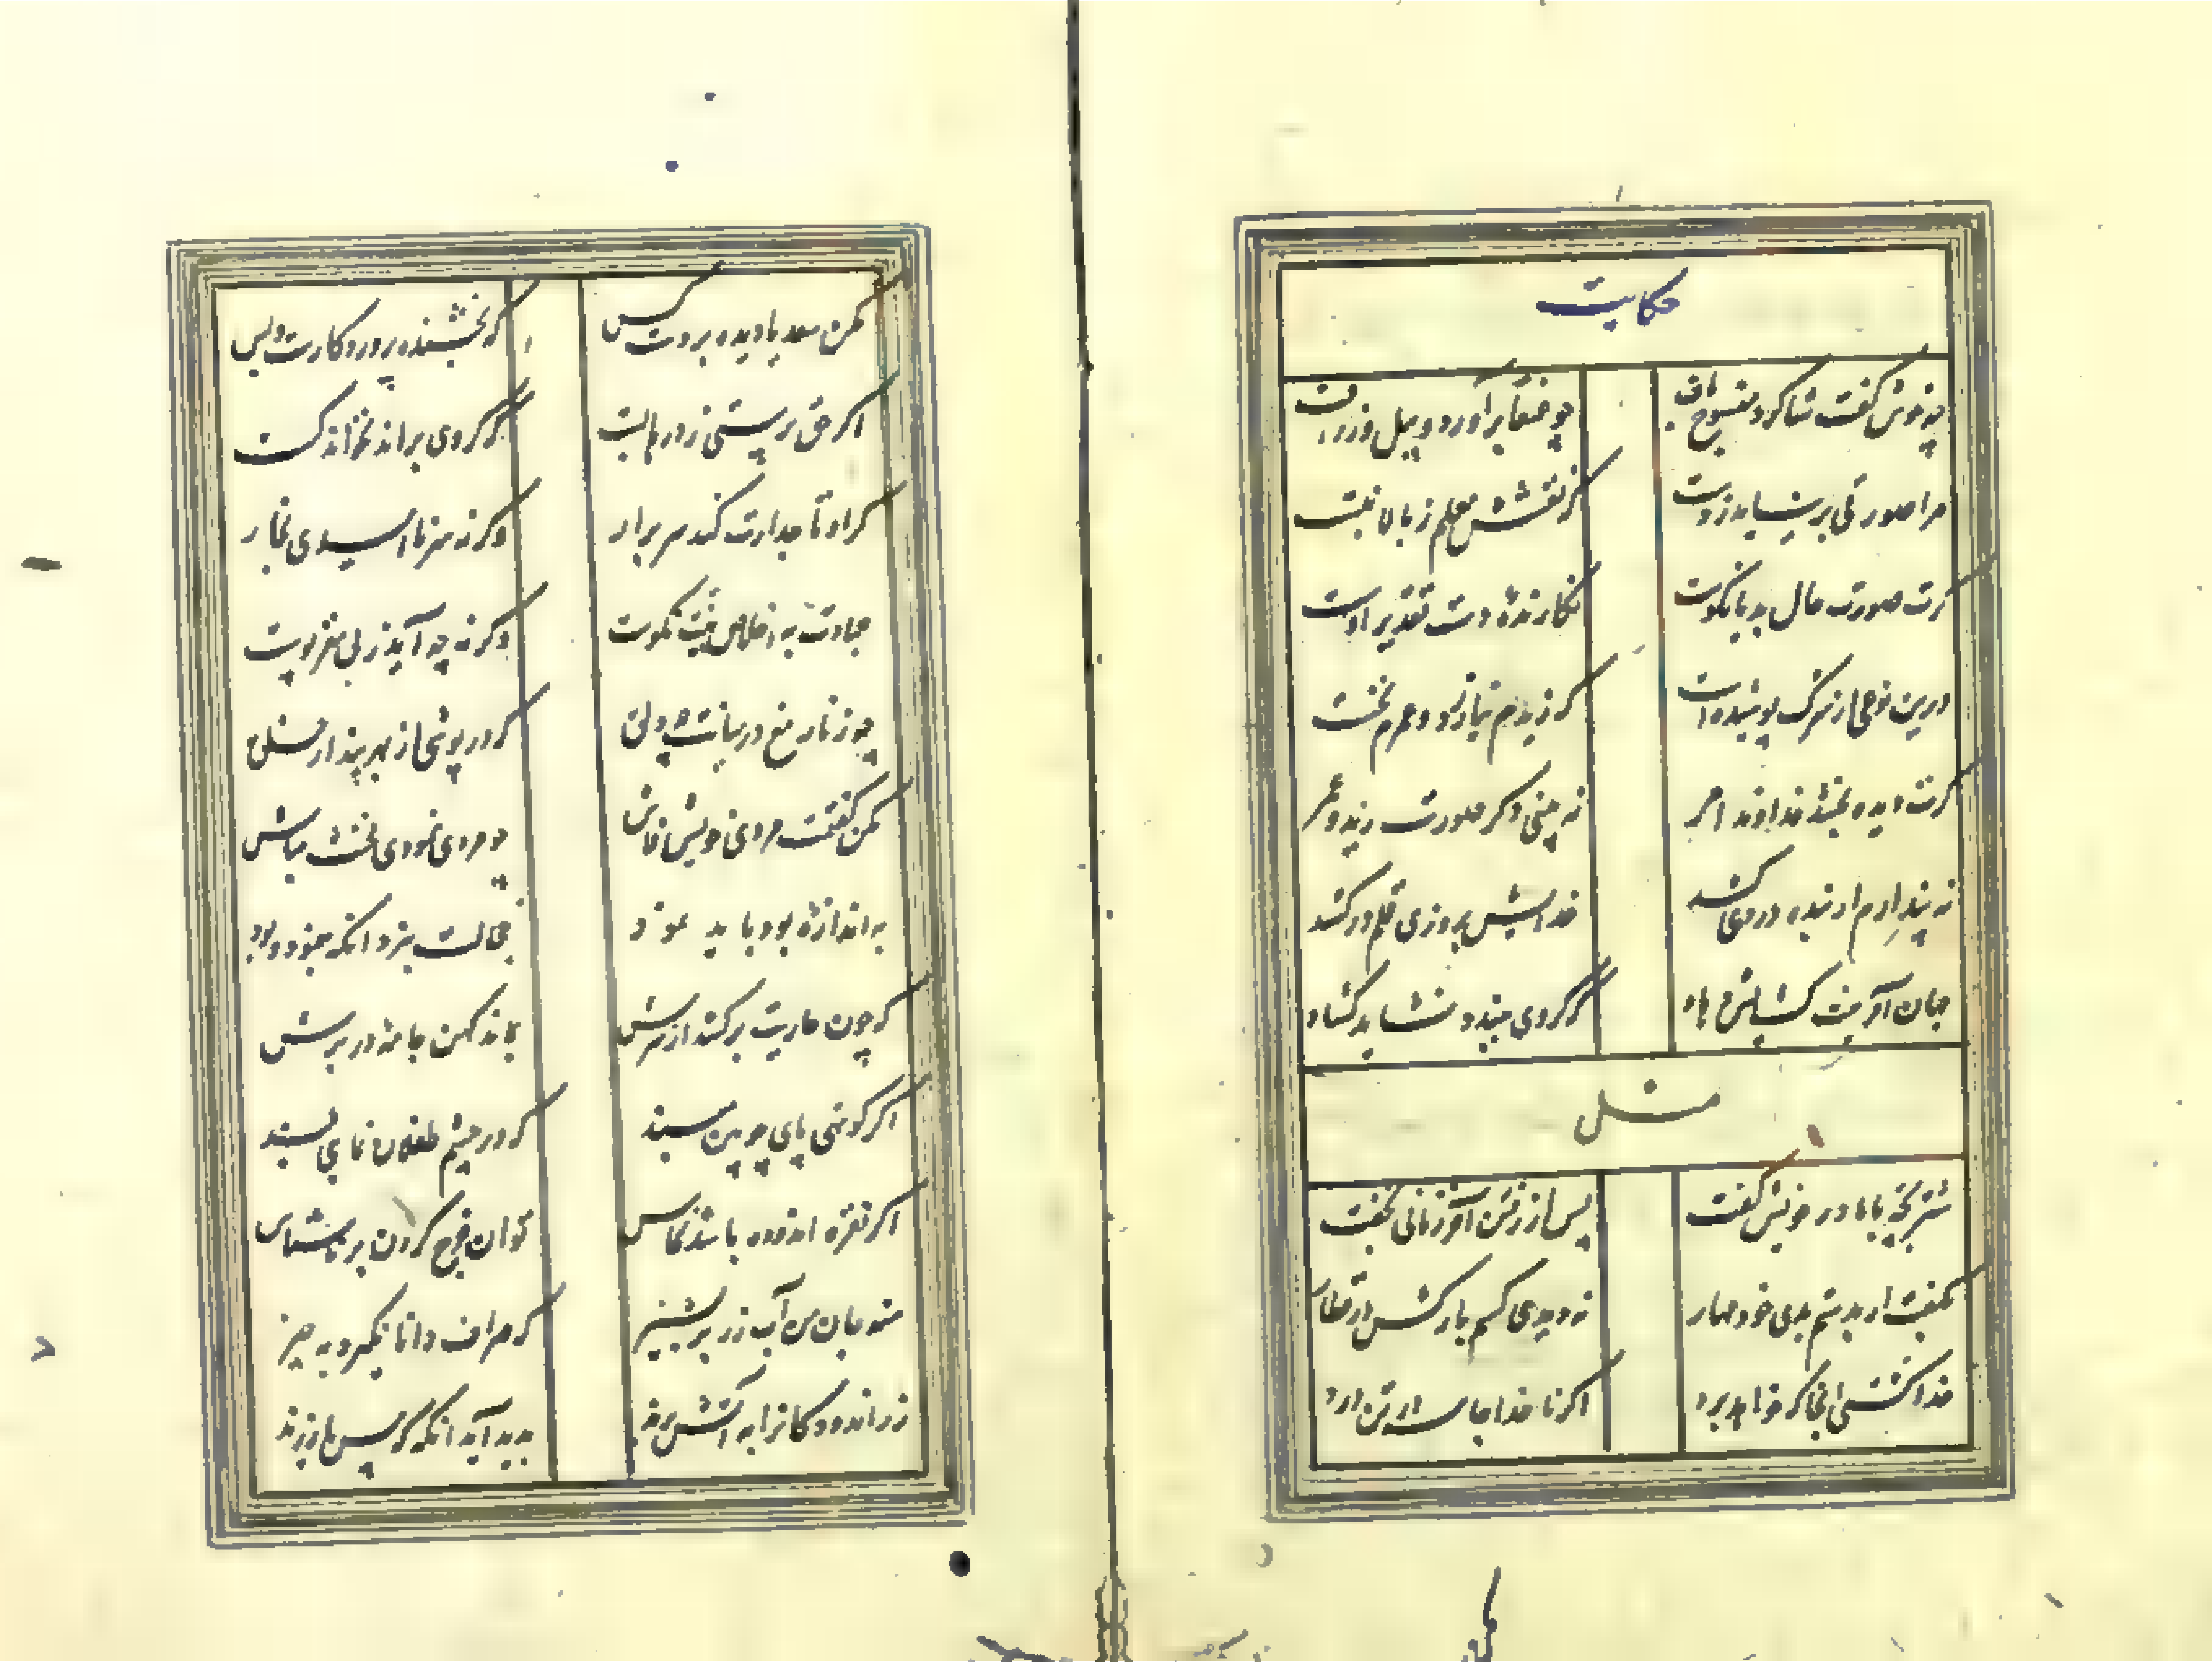 حکایت
چه خوش گفت شاکرد منسوج باف چو عنقا برآورد و پیل و زراف
مرا صورتی بر نیاید ز دست که نقشش معلم ز بالا نبست
کرت صورت حال بد یا نکوست نکارندهٔ دست تقدیر اوست
درین نوعی از شرک پوشیده است که زیدم بیازرد و عمرم بخست
کرت دیده بخشد خداوند امر نه بینی دکر صورت زید و عمر
نه پندارم ار بنده دم در کشد خدایش بروزی قلم در کشد
جهان آفرینت کشایش دهاد که کر وی ببندد نشاید کشاد
مثل
شتر بچه با مادر خویش کفت پس از رفتن آخر زمانی بخفت
بکفت ار بدستم بدی خود مهار نه دیدی کسم بارکش در قطار
خدا کشتی انجا که خواهد برد اکر ناخدا جامه در تن درد
مکن سعدیا دیده بر دست کس که بخشنده پروردکارست و بس
اکر حق پرستی ز درها بست که کر وی براند نخواند کست
کر او تاجدارت کند سر برار وکرنه سر ناامیدی بخار
عبادت به اخلاص نیت نکوست وکرنه چه آید ز بی مغز پوست
چه زنار مغ در میانت چه دلق که در پوشی از بهر پندار خلق
مکن کفتمت مردی خویش فاش چو مردی نمودی مخنث مباش
به اندازه بود باید نمود خجالت نبرد انکه ننمود و بود
که چون عاریت برکنند از سرش بماند کهن جامه در برش
اکر کوتهی پای چوبین مبند که در چشم طفلان نمایی بلند
اکر نقره اندوده باشد نحاس توان خرج کردن بر ناشناس
منه جان من آب زر بر پشیز که صراف دانا نکیرد به چیز
زر اندودکانرا به آتش برند بدید آید انکه که مس یا زرند